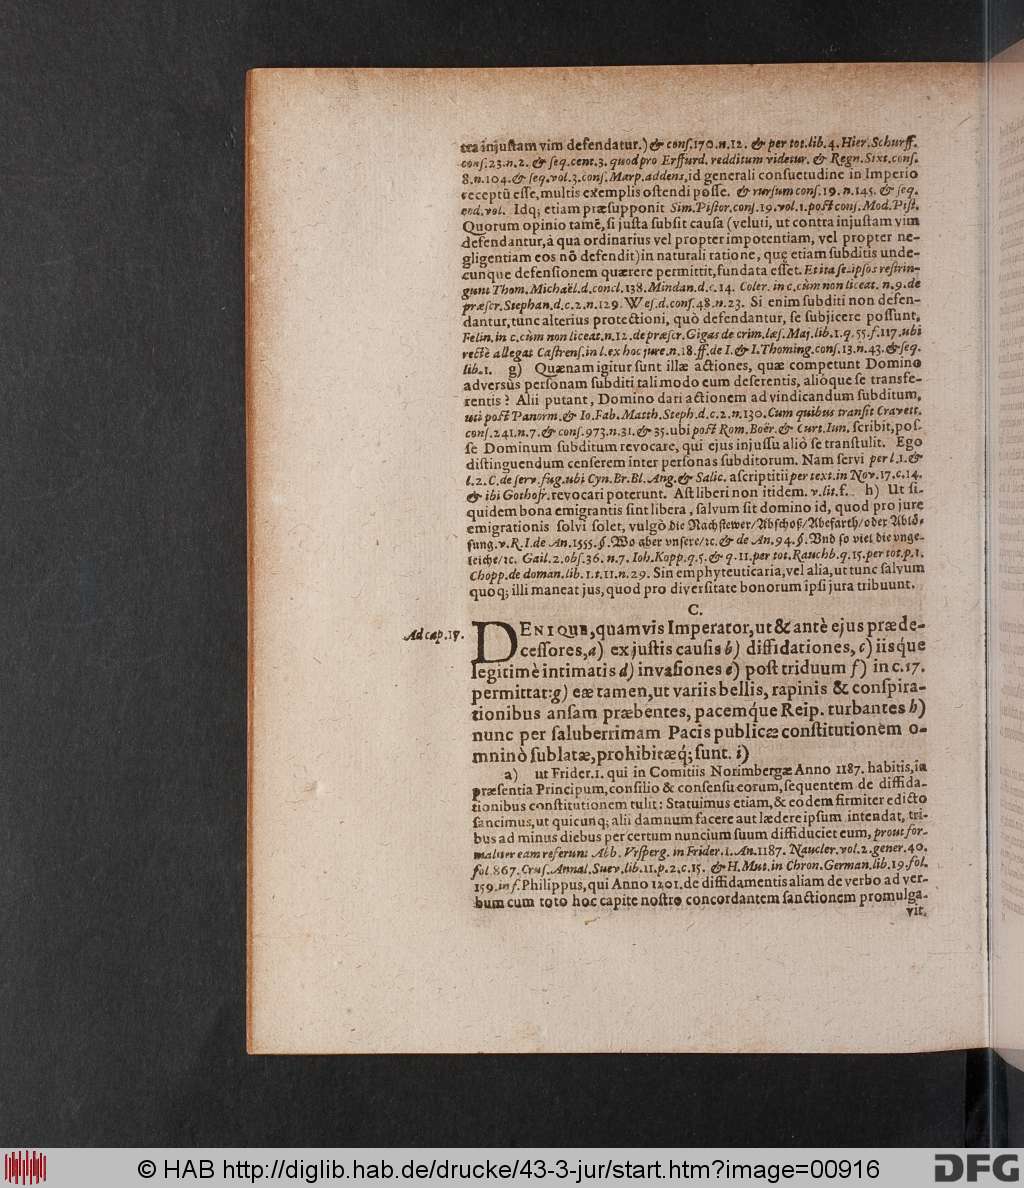 tra injustam vim defendatur.) & cons.170.n.12. & per tot.lib.4. Hier. Schurff.
cons.23.n.2. & seq.cent.3. quod pro Erffurd. redditum videtur. & Regn. Sixt. cons.
8.n.104.& seq.vol.3.cons. Marp. addens, id generali consuetudine in Imperio
receptũ esse, multis exemplis ostendi posse. & rursum cons.19.n.145. & seq.
eod.vol. Idq; etiam præsupponit Sim. Pistor. cons.19.vol.1.post cons. Mod. Pist.
Quorum opinio tamẽ, si justa subsit causa (veluti, ut contra injustam vim
defendantur, à qua ordinarius vel propter impotentiam, vel propter ne-
gligentiam eos nõ defendit) in naturali ratione, quę etiam subditis unde-
cunque defensionem quærere permittit, fundata esset. Et ita se-ipsos restrin-
gunt Thom. Michaël.d.concl.138. Mindan.d.c.14. Coler. in c.cùm non liceat. n.9.de
præscr. Stephan.d.c.2.n.129. Wes.d.cons.48.n.23. Si enim subditi non defen-
dantur, tunc alterius protectioni, quò defendantur, se subjicere possunt,
Felin. in c.cùm non liceat.n.12.de præscr. Gigas de crim.læs.Maj.lib.1.q.55.f.117.ubi
rectè allegat Castrens. in l.ex hoc jure.n.18.ff.de I.& I. Thoming.cons.13.n.43.& seq.
lib.1. g) Quænam igitur sunt illæ actiones, quæ competunt Domino
adversùs personam subditi tali modo eum deserentis, alióque se transfe-
rentis? Alii putant, Domino dari actionem ad vindicandum subditum,
uti post Panorm.& Io. Fab. Matth. Steph.d.c.2.n.130. Cum quibus transit Cravett.
cons.241.n.7.& cons.973.n.31.& 35.ubi post Rom. Boër.& Curt. Iun. scribit, pos-
se Dominum subditum revocare, qui ejus injussu aliò se transtulit. Ego
distinguendum censerem inter personas subditorum. Nam servi per l.1.&
l.2.C.de serv.fug.ubi Cyn. Br. Bl. Ang.& Salic. ascriptitii per text.in Nov.17.c.14.
& ibi Gothofr. revocari poterunt. Ast liberi non itidem. v.lit.f. h) Ut si-
quidem bona emigrantis sint libera, salvum sit domino id, quod pro jure
emigrationis solvi solet, vulgò die Nachstewer/Abschoß/Abefarth/oder Ablö-
sung. v. R. I. de An.1555.§. Wo aber vnsere/ꝛc.& de An.94.§. Vnd so viel die vnge-
teiche/ꝛc. Gail.2.obs.36.n.7. Ioh. Kopp.q.5.& q.11.per tot. Rauchb.q.15.per tot.p.1.
Chopp.de doman.lib.1.t.11.n.29. Sin emphyteuticaria, vel alia, ut tunc salvum
quoq; illi maneat jus, quod pro diversitate bonorum ipsi jura tribuunt.
C.
Ad cap. 17.
DENIQUE, quamvis Imperator, ut & antè ejus præde-
cessores, a) ex justis causis b) diffidationes, c) iisque
legitimè intimatis d) invasiones e) post triduum f) in c.17.
permittat: g) eæ tamen, ut variis bellis, rapinis & conspira-
tionibus ansam præbentes, pacemq́ue Reip. turbantes h)
nunc per saluberrimam Pacis publicæ constitutionem o-
mninò sublatæ, prohibitæq́; sunt. i)
a) ut Frider.1. qui in Comitiis Norimbergæ Anno 1187. habitis, in
præsentia Principum, consilio & consensu eorum, sequentem de diffida-
tionibus constitutionem tulit: Statuimus etiam, & eodem firmiter edicto
sancimus, ut quicunq; alii damnum facere aut lædere ipsum intendat, tri-
bus ad minus diebus per certum nuncium suum diffiduciet eum, prout for-
maliter eam referunt Abb. Vrsperg. in Frider.1.An.1187. Naucler.vol.2.gener.40.
fol.867. Crus. Annal. Suev.lib.11.p.2.c.15. & H. Mut.in Chron. German.lib.19.fol.
159.in f. Philippus, qui Anno 1201. de diffidamentis aliam de verbo ad ver-
bum cum toto hoc capite nostro concordantem sanctionem promulga-
vit.
© HAB http://diglib.hab.de/drucke/43-3-jur/start.htm?image=00916
DFG